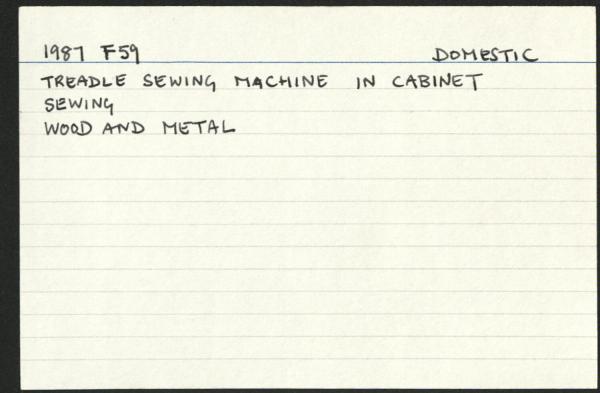 1987 F59 DOMESTIC
TREADLE SEWING MACHINE IN CABINET
SEWING
WOOD AND METAL